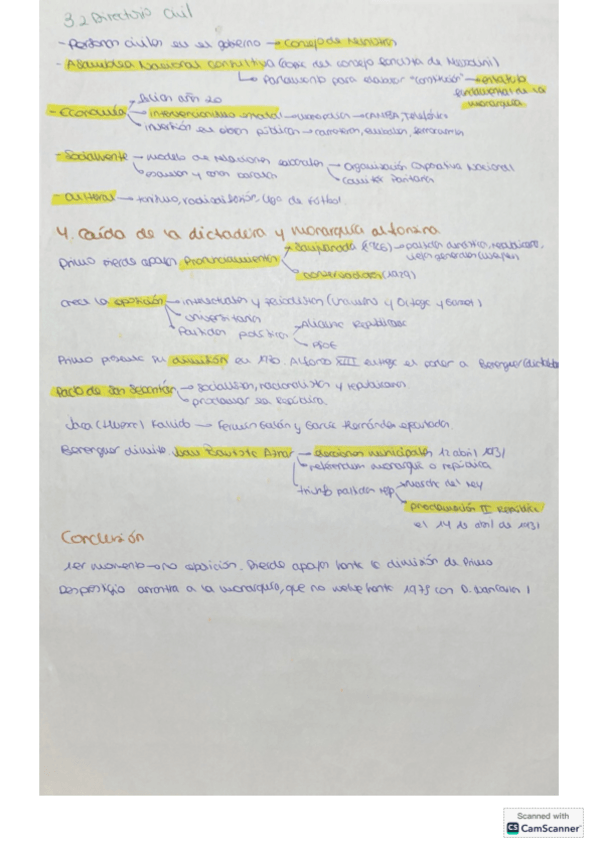 3.2 Directorio civil
- Personas civiles en el gobierno → Consejo de Ministros
- Asamblea Nacional Consultiva (copia del consejo fascista de Mussolini)
↳ Parlamento para elaborar "constitución" → estatuto
fundamental de la
monarquía
- Economía → felices años 20
→ intervencionismo estatal → monopolios → CAMPSA, Telefónica
→ inversión en obras públicas → carreteras, embalses, ferrocarriles
- Socialmente → modelo de relaciones laborales → Organización Corporativa Nacional
→ Comités Paritarios
- Cultural → turismo, radiodifusión, liga de fútbol.
4. Caída de la dictadura y monarquía alfonsina
Primo pierde apoyos Pronunciamientos → Sanjuanada (1926) → partidos dinásticos, republicanos,
→ (1929)
crece la oposición → intelectuales y periodistas (Unamuno y Ortega y Gasset)
→ universitarios
→ Partidos políticos → Alianza Republicana
→ PSOE
Primo presenta su dimisión en 1930. Alfonso XIII entrega el poder a Berenguer
Pacto de San Sebastián → socialistas, nacionalistas y republicanos
→ proclamar la República.
Jaca (Huesca) Fallido → Fermín Galán y García Hernández
Berenguer dimite. Juan Bautista Aznar → elecciones municipales 12 abril 1931
→ referéndum monarquía o república
→ triunfo partidos rep → marcha del rey
→ proclamación II República
el 14 de abril de 1931
Conclusión
1er momento → no oposición. Pierde apoyos hasta la dimisión de Primo
Desprestigio arrastra a la monarquía, que no vuelve hasta 1975 con D. Juan Carlos I
Scanned with
CS CamScanner